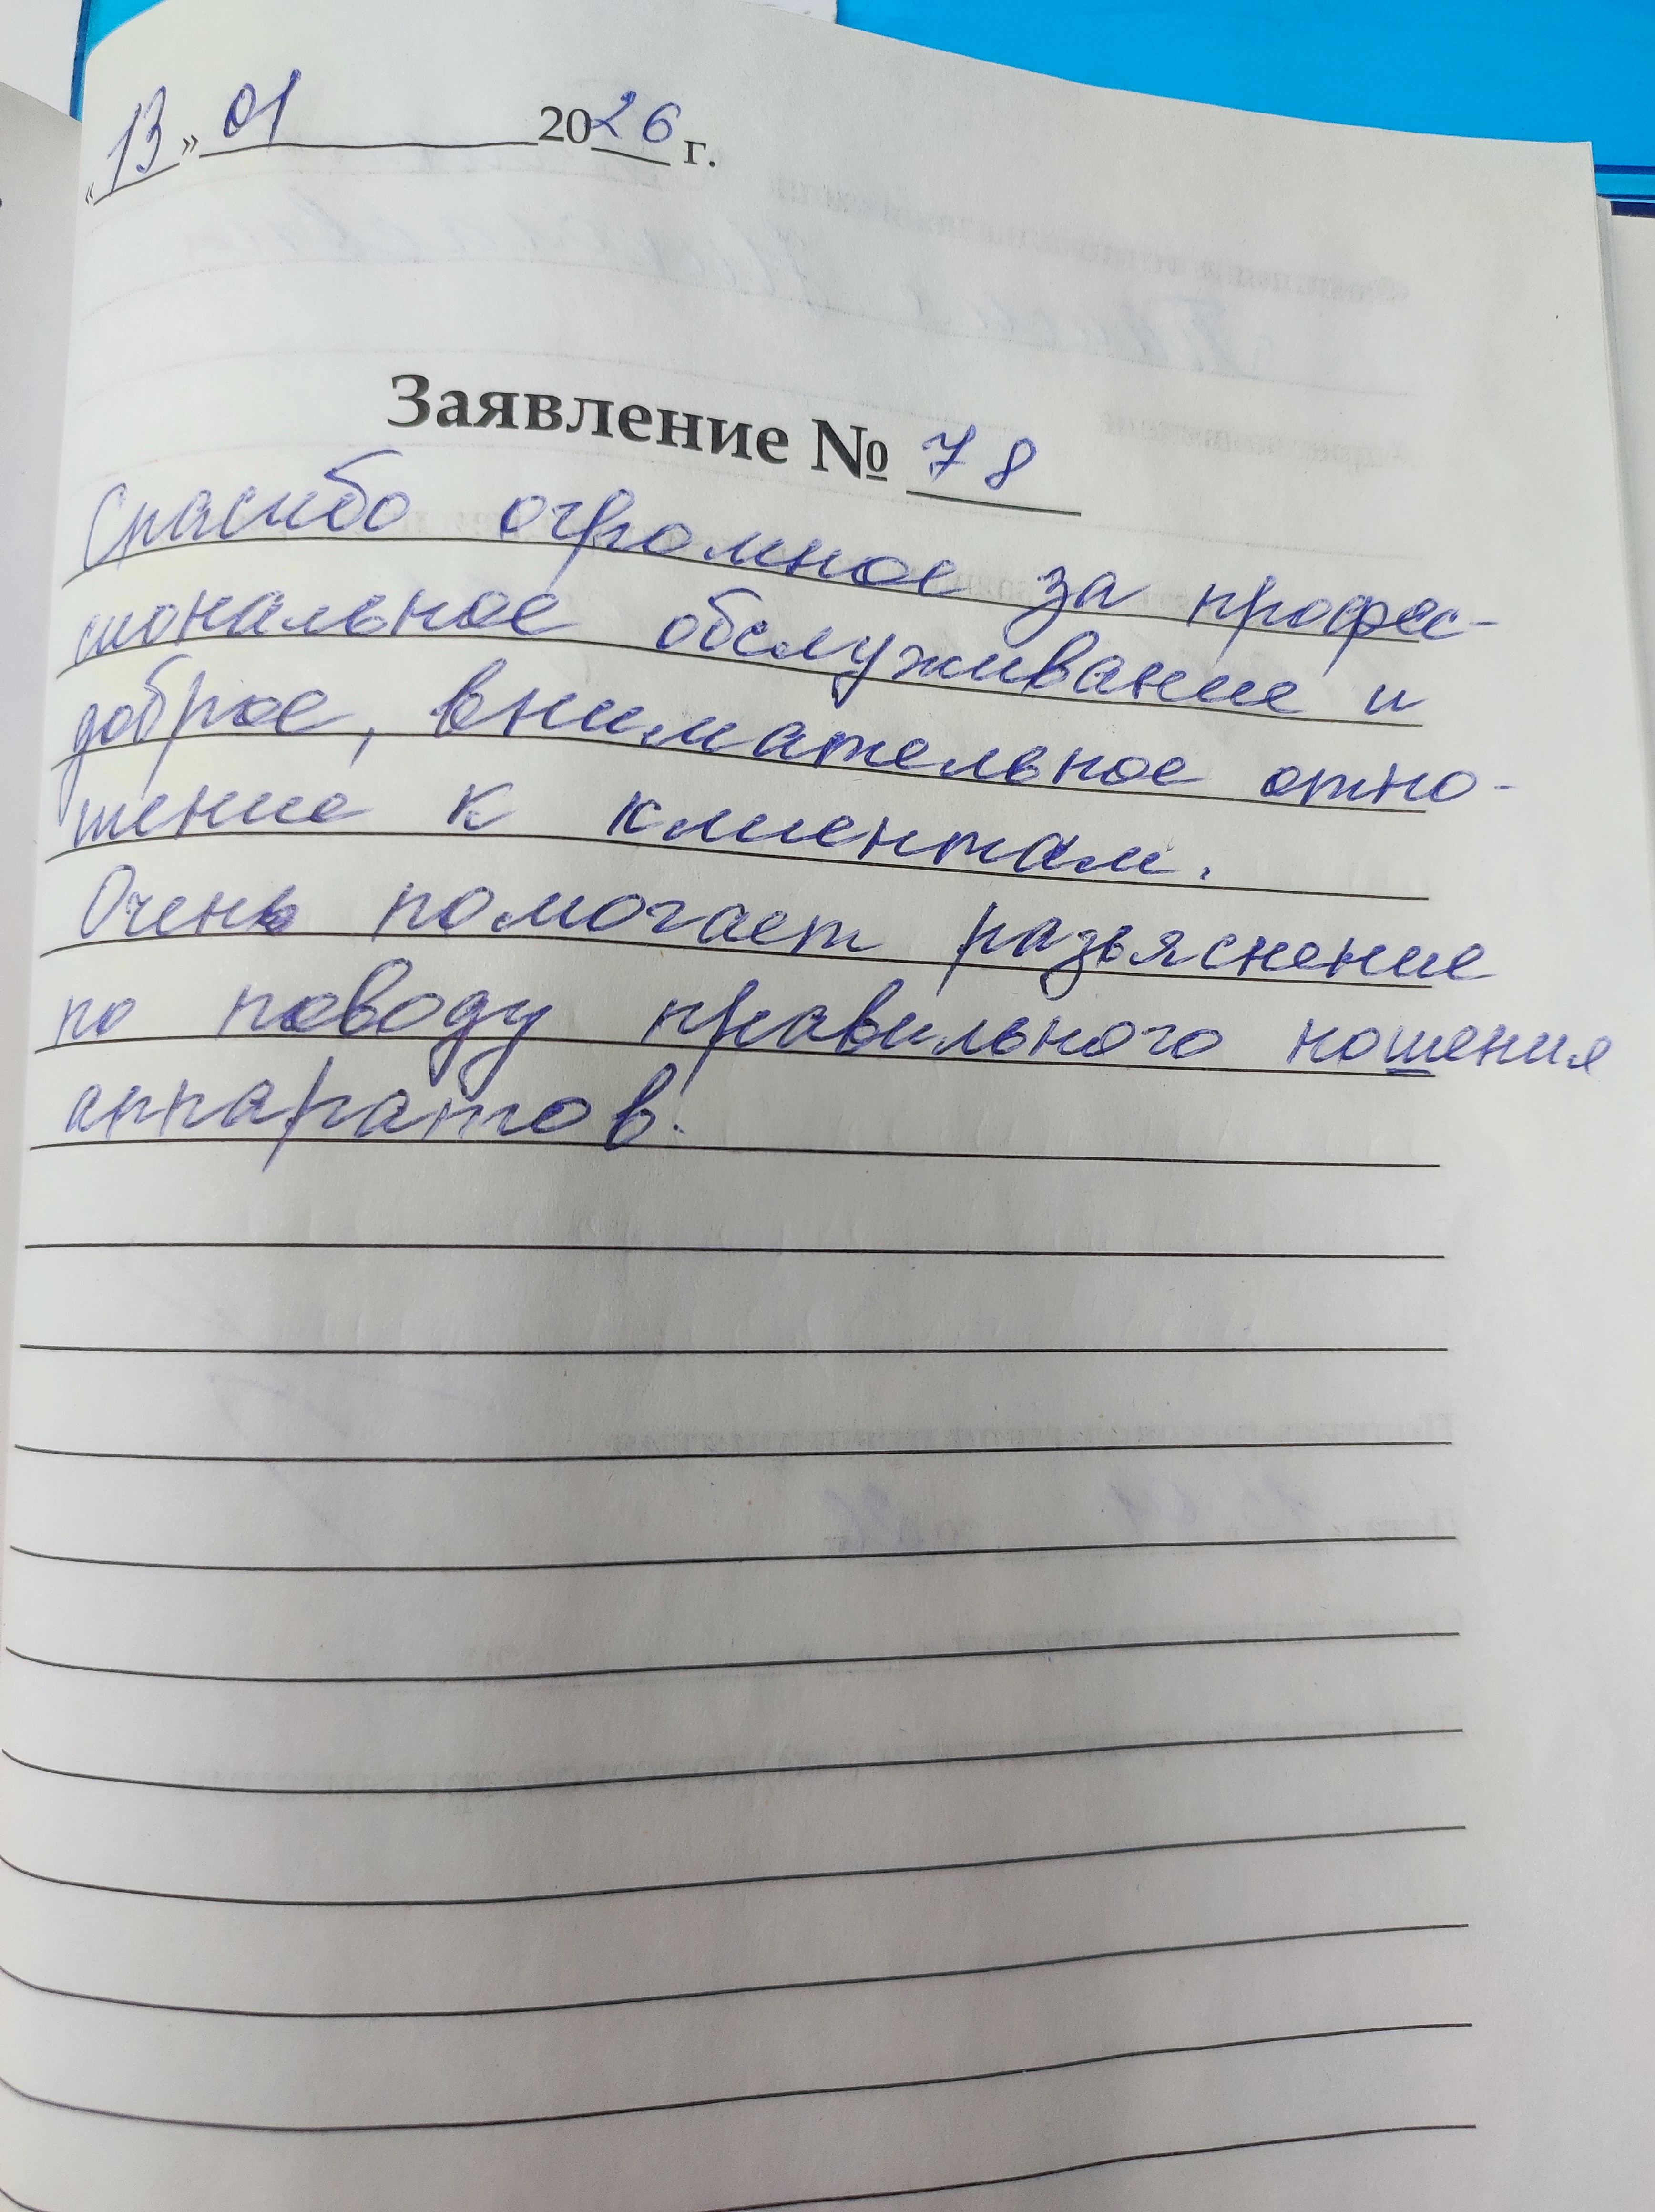 «13» 01 2026 г.
Заявление № 78
Спасибо огромное за профес-
сиональное обслуживание и
доброе, внимательное отно-
шение к клиентам.
Очень помогает разъяснение
по поводу правильного ношения
аппаратов.